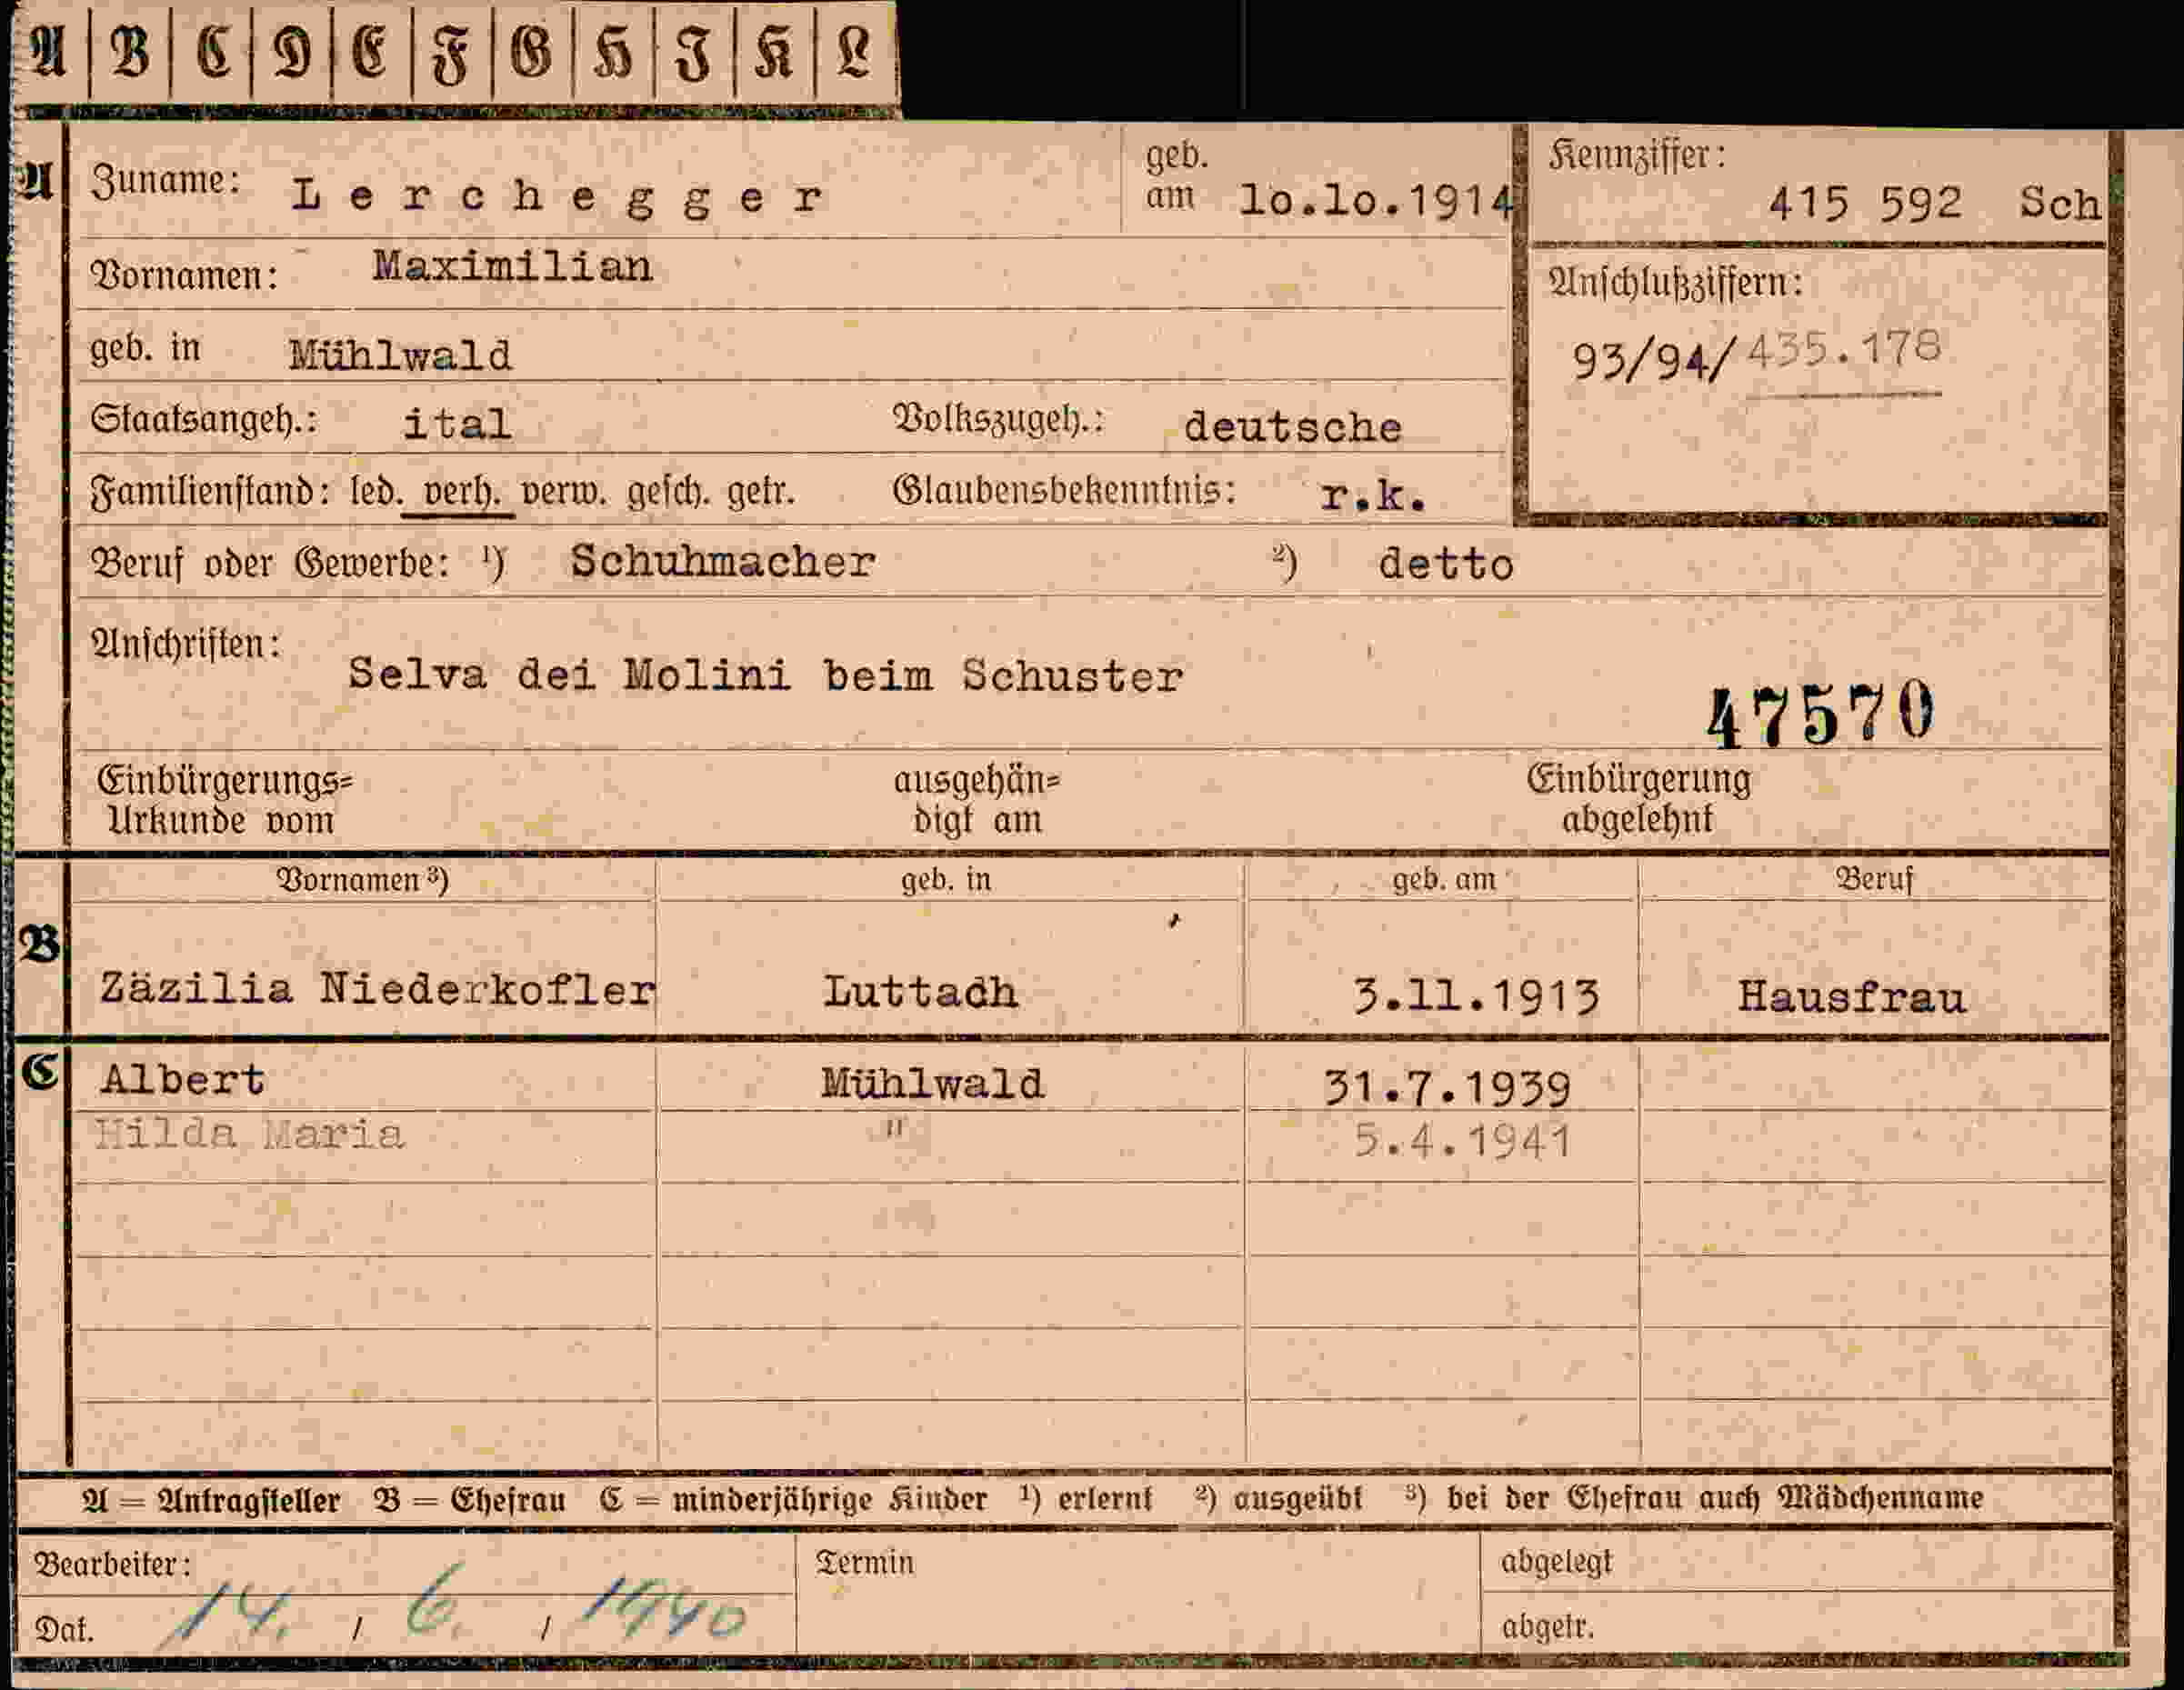 A B C D E F G H J K L
A Zuname: Lerchegger geb. am 10.10.1914 Kennziffer: 415 592 Sch
Vornamen: Maximilian Anschlußziffern:
geb. in Mühlwald 93/94/435.178
Staatsangeh.: ital Volkszugeh.: deutsche
Familienstand: led. verh. verw. gesch. getr. Glaubensbekenntnis: r.k.
Beruf oder Gewerbe: ¹) Schuhmacher ²) detto
Anschriften:
Selva dei Molini beim Schuster
47570
Einbürgerungs= ausgehän= Einbürgerung
Urkunde vom digt am abgelehnt
Vornamen ³) geb. in geb. am Beruf
B
Zäzilia Niederkofler Luttach 3.11.1913 Hausfrau
C Albert Mühlwald 31.7.1939
Hilda Maria " 5.4.1941
A = Antragsteller B = Ehefrau C = minderjährige Kinder ¹) erlernt ²) ausgeübt ³) bei der Ehefrau auch Mädchenname
Bearbeiter: Termin abgelegt
Dat. 14. / 6. / 1940 abgetr.